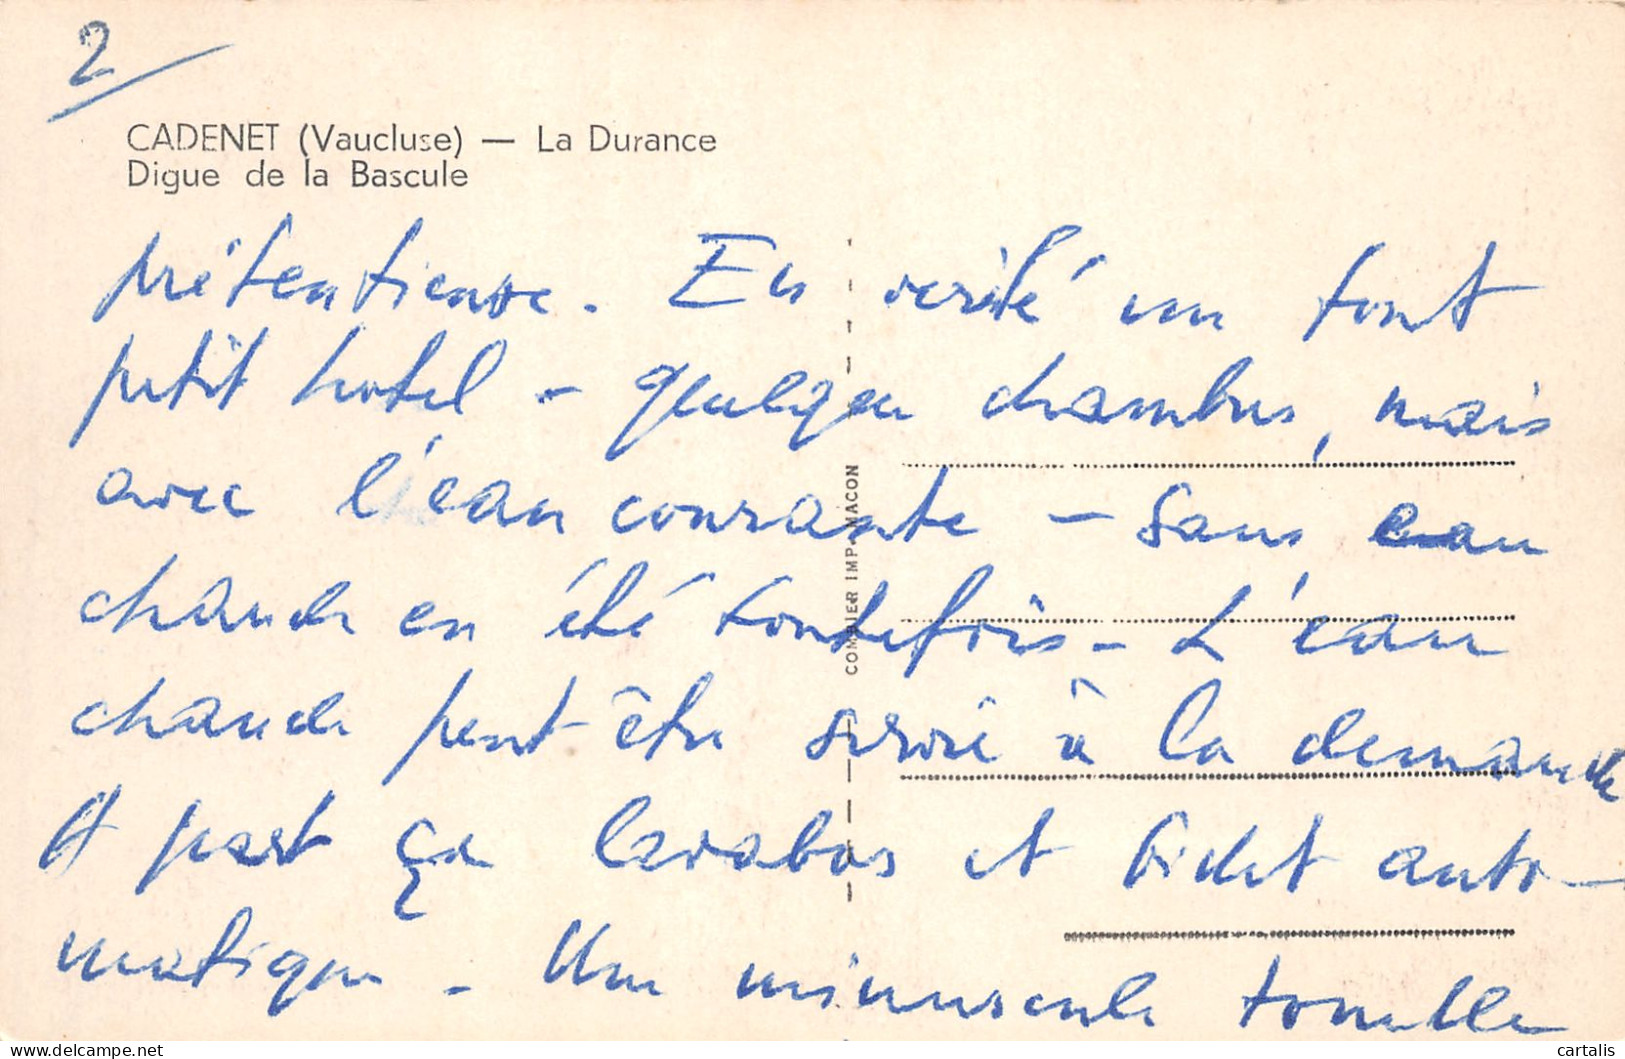 2
CADENET (Vaucluse) — La Durance
Digue de la Bascule
prétentieuse. En vérité un tout
petit hotel - quelques chambres, mais
avec l'eau courante - Sans eau
chaude en été toutefois - L'eau
chaude peut être servie à la demande
A part ça lavabos et bidet auto-
matique - Une minuscule tonnelle
COMBIER IMP. MACON
cartalis
delcampe.net